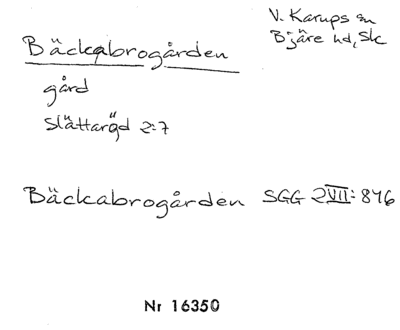 V. Karups sn
Bjäre hd, Sk
Bäckabrogården
gård
Slättaröd 2:7
Bäckabrogården SGG 2VII:876
Nr 16350